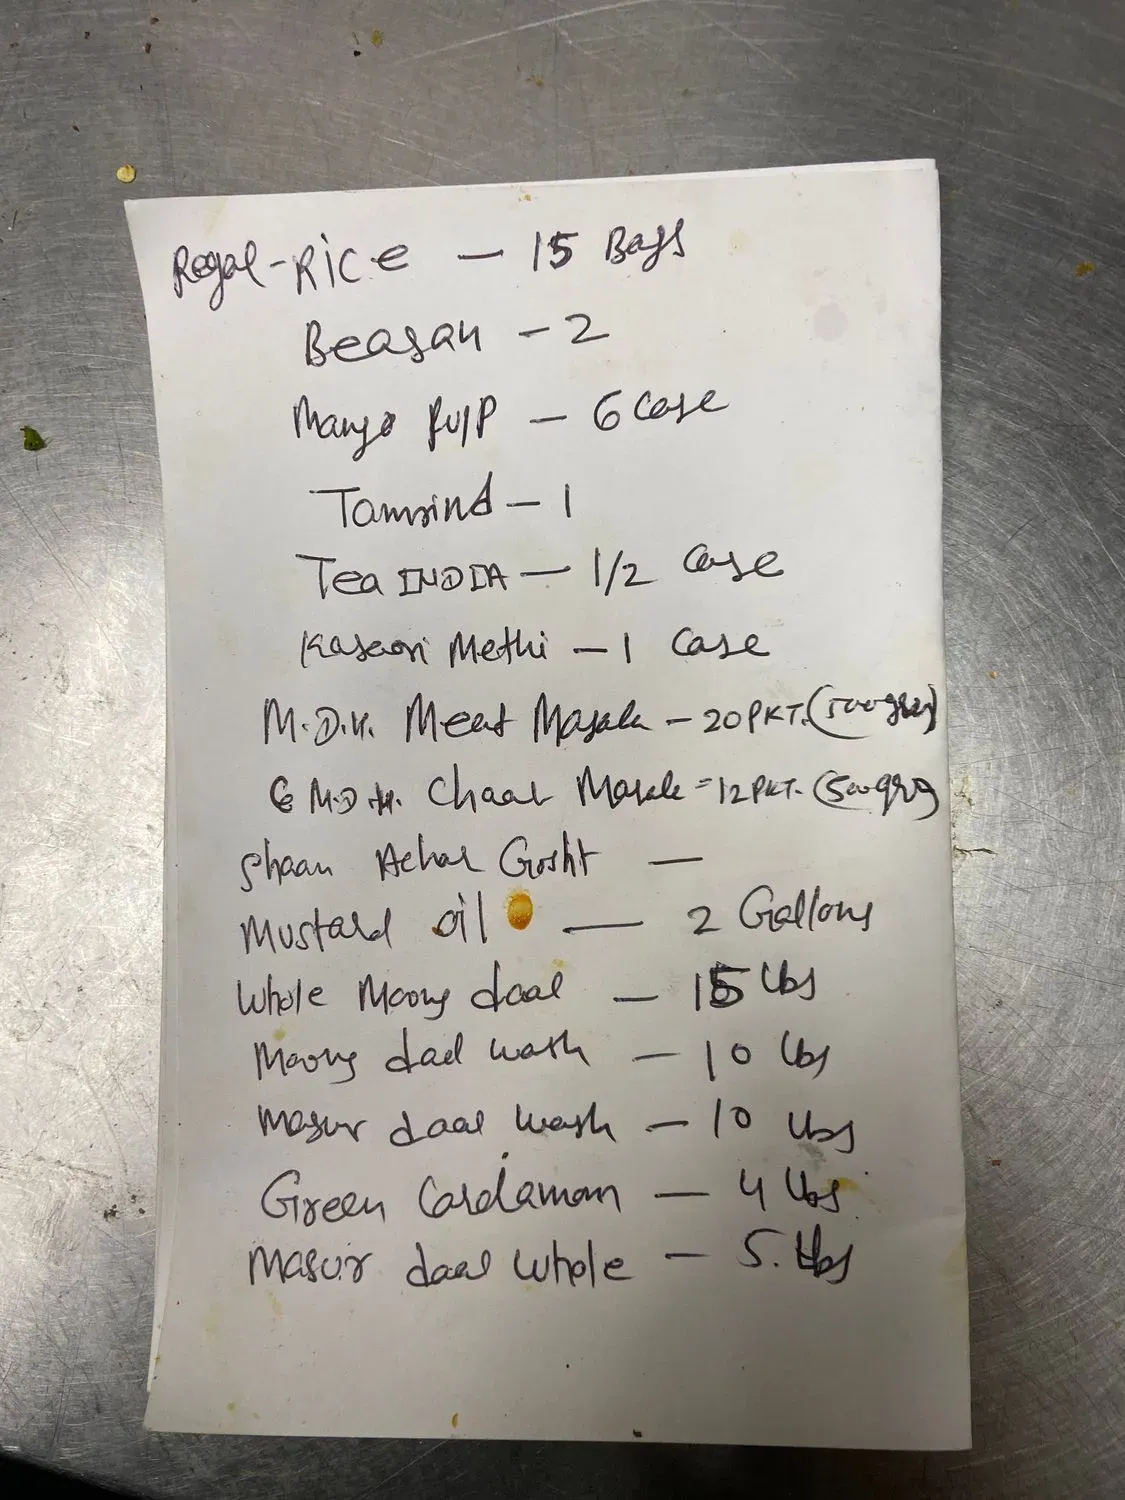 Regal-Rice — 15 Bags
Beasan - 2
Mango Pulp - 6 Case
Tamrind - 1
Tea INDIA - 1/2 Case
Kasoori Methi - 1 Case
M.D.H. Meat Masala - 20 PKT. (500grm)
M.D.H. Chaat Masala = 12 PKT. (500gr
Shaan Achar Gosht —
Mustard oil — 2 Gallons
Whole Moong daal — 15 lbs
Moong dael wash — 10 lbs
Masur daal wash — 10 lbs
Green Cardamom — 4 lbs
Masur daal whole — 5. lbs